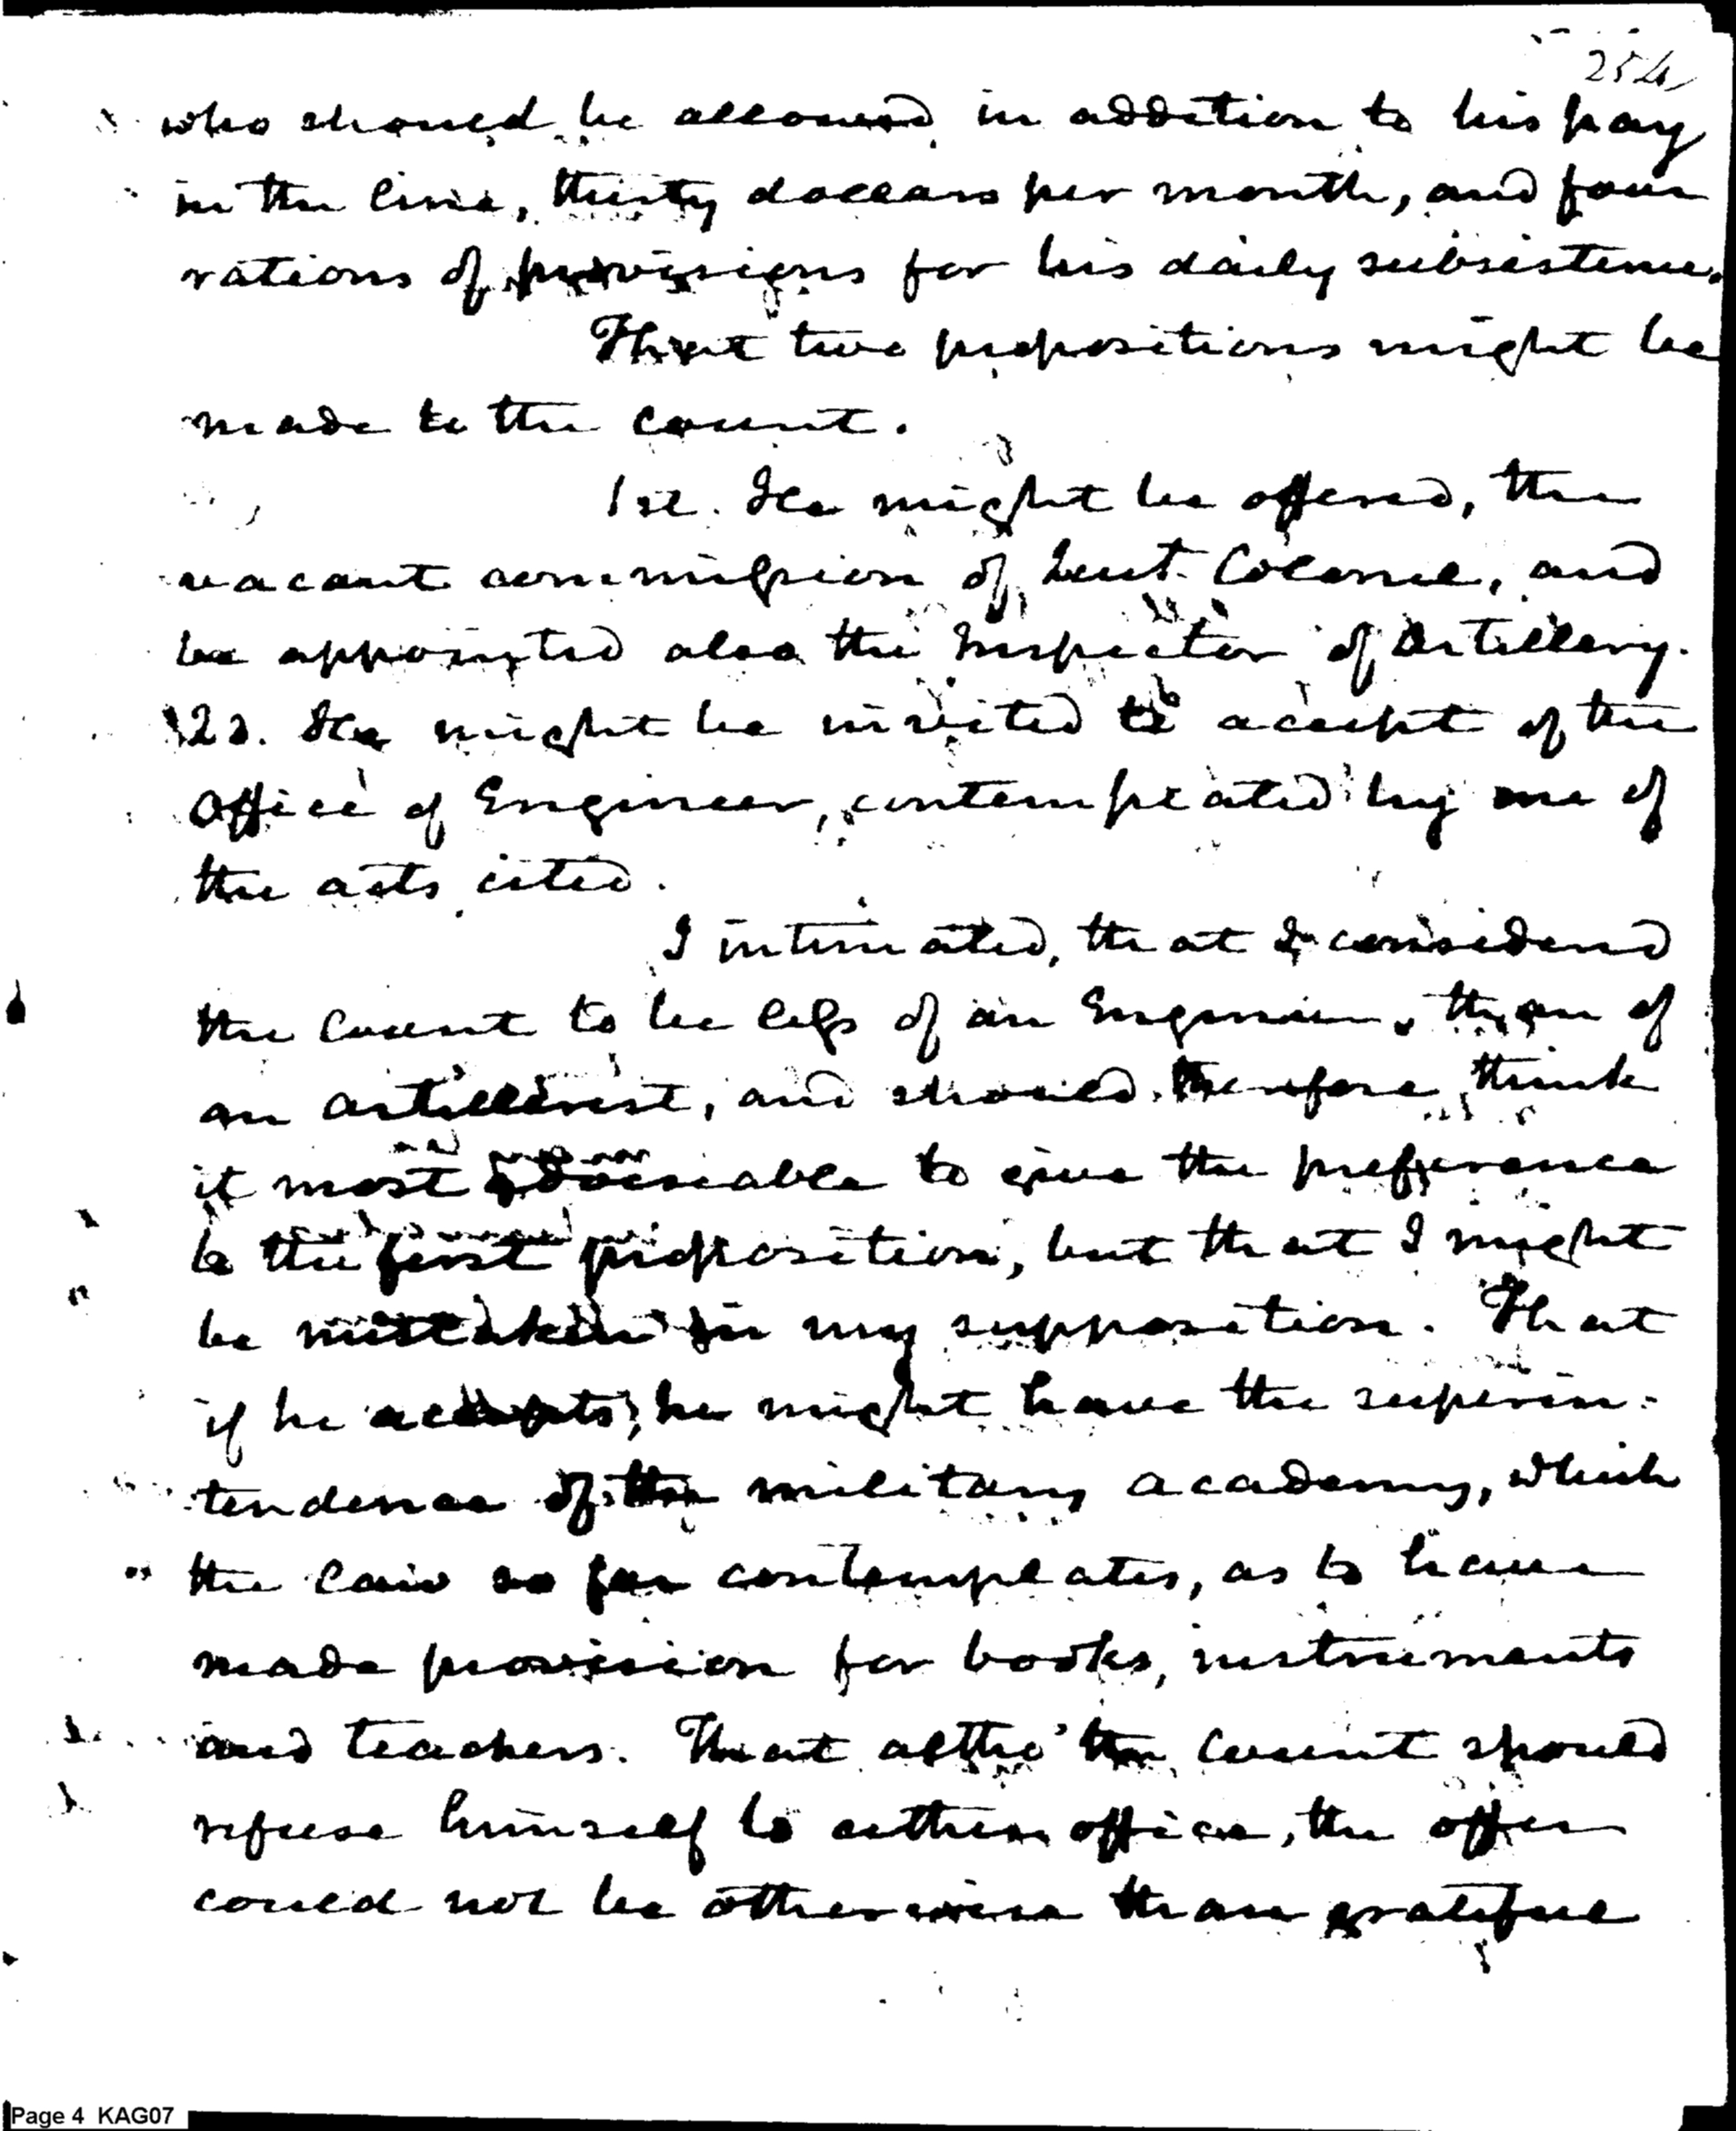 254
who should be allowed in addition to his pay
in the line, thirty dollars per month, and four
rations of provisions for his daily subsistence.
That two propositions might be
made to the count.
1st. He might be offered, the
vacant commission of Lieut. Colonel, and
be appointed also the Inspector of Artillery.
2d. He might be invited to accept of the
office of Engineer, contemplated by one of
the acts cited.
I intimated, that I considered
the Count to be less of an Engineer, than of
an artillerist, and should therefore, think
it most adviseable to give the preference
to the first proposition, but that I might
be mistaken in my supposition. That
if he accepts, he might have the superin-
tendence of the military academy, which
the law so far contemplates, as to have
made provision for books, instruments
and teachers. That altho' the Count should
refuse himself to either office, the offer
could not be otherwise than grateful
Page 4 KAG07